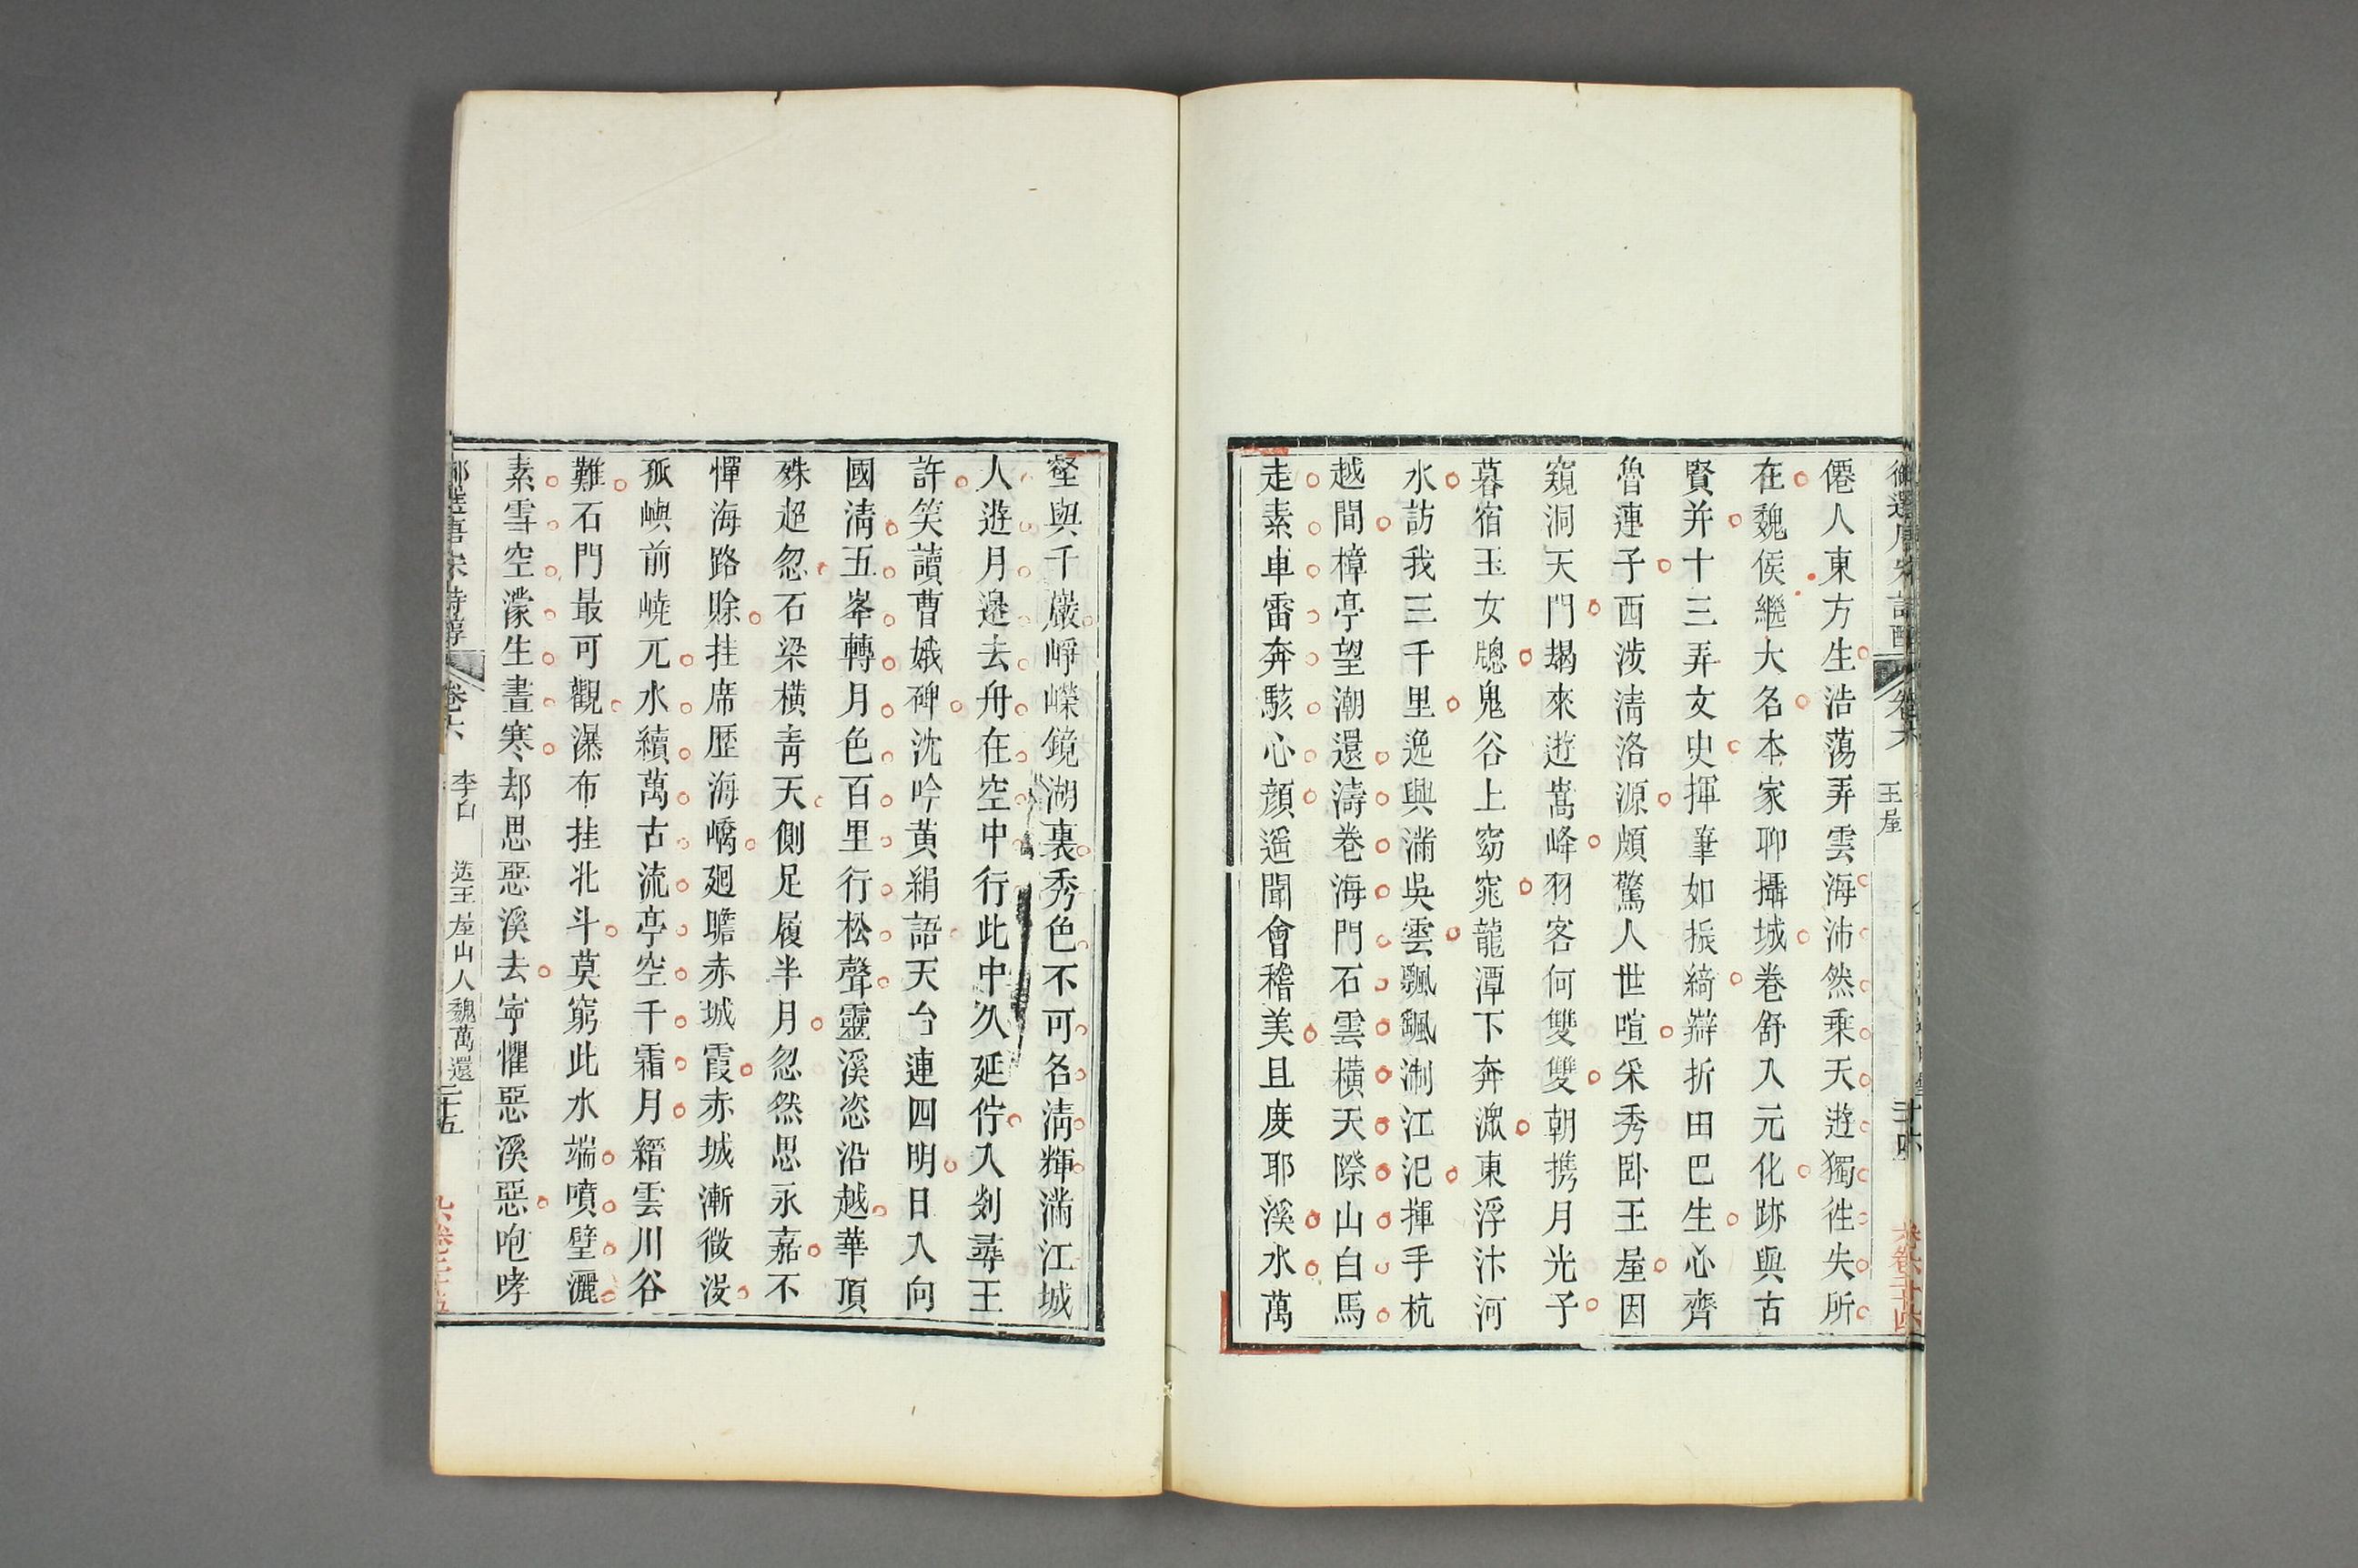 僊人東方生浩蕩弄雲海沛然乘天遊獨往失所
在魏侯繼大名本家聊攝城卷舒入元化跡與古
賢并十三弄文史揮筆如振綺辯折田巴生心齊
魯連子西涉清洛源頗驚人世喧采秀臥王屋因
窺洞天門朅來遊嵩峰羽客何雙雙朝携月光子
暮宿玉女牎鬼谷上窈窕龍潭下奔潨東浮汴河
水訪我三千里逸興滿吳雲飄颻浙江汜揮手杭
越間樟亭望潮還濤卷海門石雲橫天際山白馬
走素車雷奔駭心顔遥聞會稽美且度耶溪水萬
壑與千巖崢嶸鏡湖裏秀色不可名清輝滿江城
人遊月邊去舟在空中行此中久延佇入剡尋王
許笑讀曹娥碑沈吟黃絹語天台連四明日入向
國清五峯轉月色百里行松聲靈溪恣沿越華頂
殊超忽石梁橫青天側足履半月忽然思永嘉不
憚海路賒挂席歷海嶠廻瞻赤城霞赤城漸微沒
孤嶼前嶢兀水續萬古流亭空千霜月縉雲川谷
難石門最可觀瀑布挂北斗莫窮此水端噴壁灑
素雪空濛生晝寒却思惡溪去寧懼惡溪惡咆哮
御選唐宋詩醇 卷六 李白 送王屋山人魏萬還 三十五